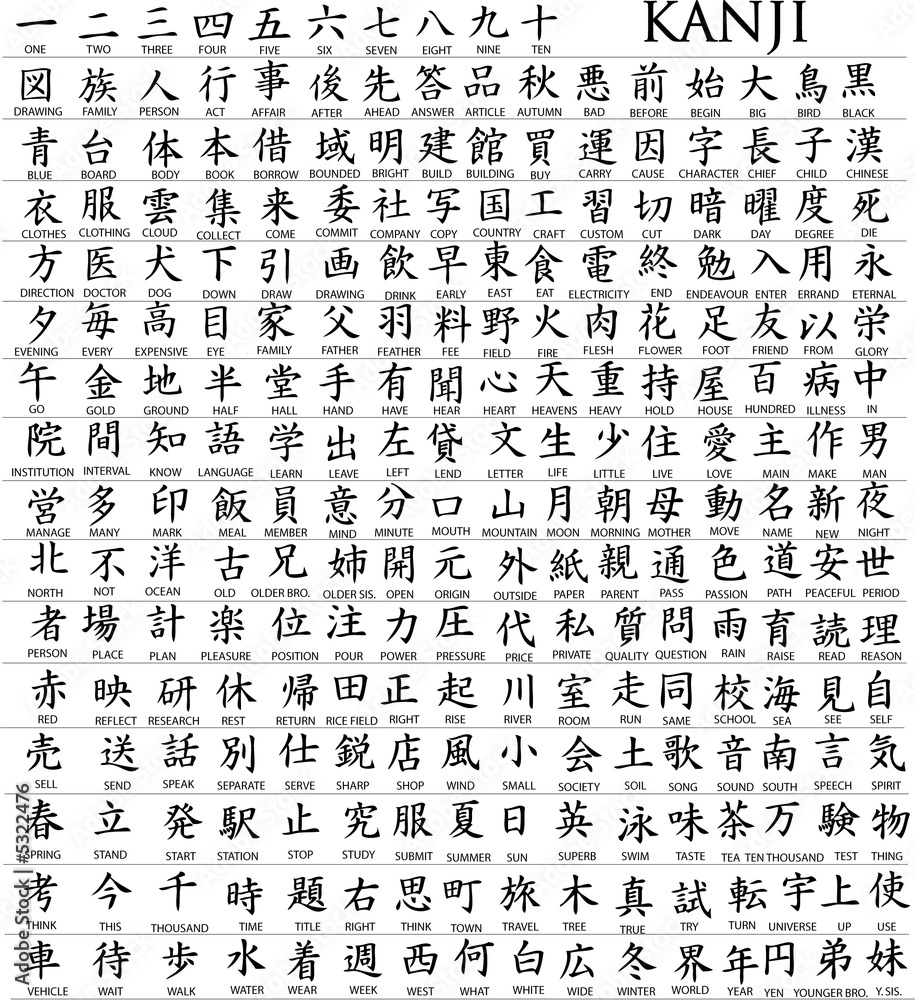 一 二 三 四 五 六 七 八 九 十 KANJI
ONE TWO THREE FOUR FIVE SIX SEVEN EIGHT NINE TEN
図 族 人 行 事 後 先 答 品 秋 悪 前 始 大 鳥 黒
DRAWING FAMILY PERSON ACT AFFAIR AFTER AHEAD ANSWER ARTICLE AUTUMN BAD BEFORE BEGIN BIG BIRD BLACK
青 台 体 本 借 域 明 建 館 買 運 因 字 長 子 漢
BLUE BOARD BODY BOOK BORROW BOUNDED BRIGHT BUILD BUILDING BUY CARRY CAUSE CHARACTER CHIEF CHILD CHINESE
衣 服 雲 集 来 委 社 写 国 工 習 切 暗 曜 度 死
CLOTHES CLOTHING CLOUD COLLECT COME COMMIT COMPANY COPY COUNTRY CRAFT CUSTOM CUT DARK DAY DEGREE DIE
方 医 犬 下 引 画 飲 早 東 食 電 終 勉 入 用 永
DIRECTION DOCTOR DOG DOWN DRAW DRAWING DRINK EARLY EAST EAT ELECTRICITY END ENDEAVOUR ENTER ERRAND ETERNAL
夕 毎 高 目 家 父 羽 料 野 火 肉 花 足 友 以 栄
EVENING EVERY EXPENSIVE EYE FAMILY FATHER FEATHER FEE FIELD FIRE FLESH FLOWER FOOT FRIEND FROM GLORY
午 金 地 半 堂 手 有 聞 心 天 重 持 屋 百 病 中
GO GOLD GROUND HALF HALL HAND HAVE HEAR HEART HEAVENS HEAVY HOLD HOUSE HUNDRED ILLNESS IN
院 間 知 語 学 出 左 貸 文 生 少 住 愛 主 作 男
INSTITUTION INTERVAL KNOW LANGUAGE LEARN LEAVE LEFT LEND LETTER LIFE LITTLE LIVE LOVE MAIN MAKE MAN
営 多 印 飯 員 意 分 口 山 月 朝 母 動 名 新 夜
MANAGE MANY MARK MEAL MEMBER MIND MINUTE MOUTH MOUNTAIN MOON MORNING MOTHER MOVE NAME NEW NIGHT
北 不 洋 古 兄 姉 開 元 外 紙 親 通 色 道 安 世
NORTH NOT OCEAN OLD OLDER BRO. OLDER SIS. OPEN ORIGIN OUTSIDE PAPER PARENT PASS PASSION PATH PEACEFUL PERIOD
者 場 計 楽 位 注 力 圧 代 私 質 問 雨 育 読 理
PERSON PLACE PLAN PLEASURE POSITION POUR POWER PRESSURE PRICE PRIVATE QUALITY QUESTION RAIN RAISE READ REASON
赤 映 研 休 帰 田 正 起 川 室 走 同 校 海 見 自
RED REFLECT RESEARCH REST RETURN RICE FIELD RIGHT RISE RIVER ROOM RUN SAME SCHOOL SEA SEE SELF
売 送 話 別 仕 鋭 店 風 小 会 土 歌 音 南 言 気
SELL SEND SPEAK SEPARATE SERVE SHARP SHOP WIND SMALL SOCIETY SOIL SONG SOUND SOUTH SPEECH SPIRIT
春 立 発 駅 止 究 服 夏 日 英 泳 味 茶 万 験 物
SPRING STAND START STATION STOP STUDY SUBMIT SUMMER SUN SUPERB SWIM TASTE TEA TEN THOUSAND TEST THING
考 今 千 時 題 右 思 町 旅 木 真 試 転 宇 上 使
THINK THIS THOUSAND TIME TITLE RIGHT THINK TOWN TRAVEL TREE TRUE TRY TURN UNIVERSE UP USE
車 待 歩 水 着 週 西 何 白 広 冬 界 年 円 弟 妹
VEHICLE WAIT WALK WATER WEAR WEEK WEST WHAT WHITE WIDE WINTER WORLD YEAR YEN YOUNGER BRO. Y. SIS.
Adobe Stock | #5322476